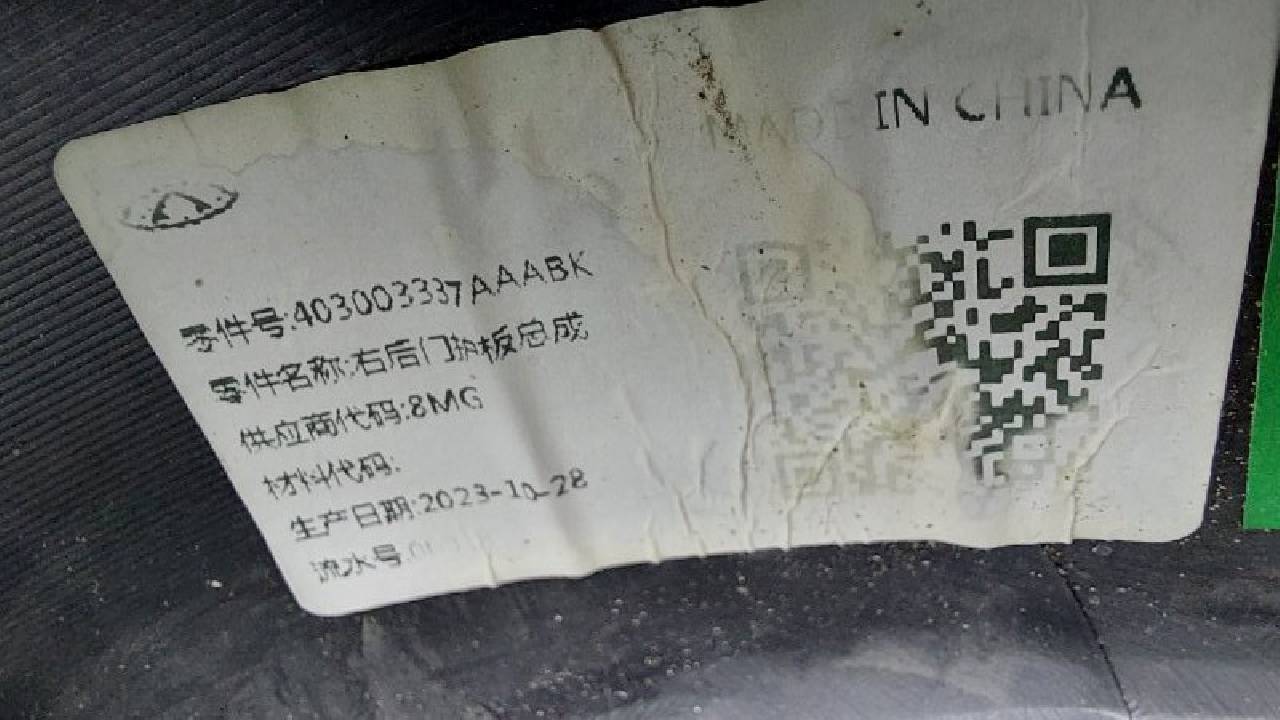 MADE IN CHINA
零件号:403003337AAABK
零件名称:右后门护板总成
供应商代码:8MG
材料代码:
生产日期:2023-10-28
流水号